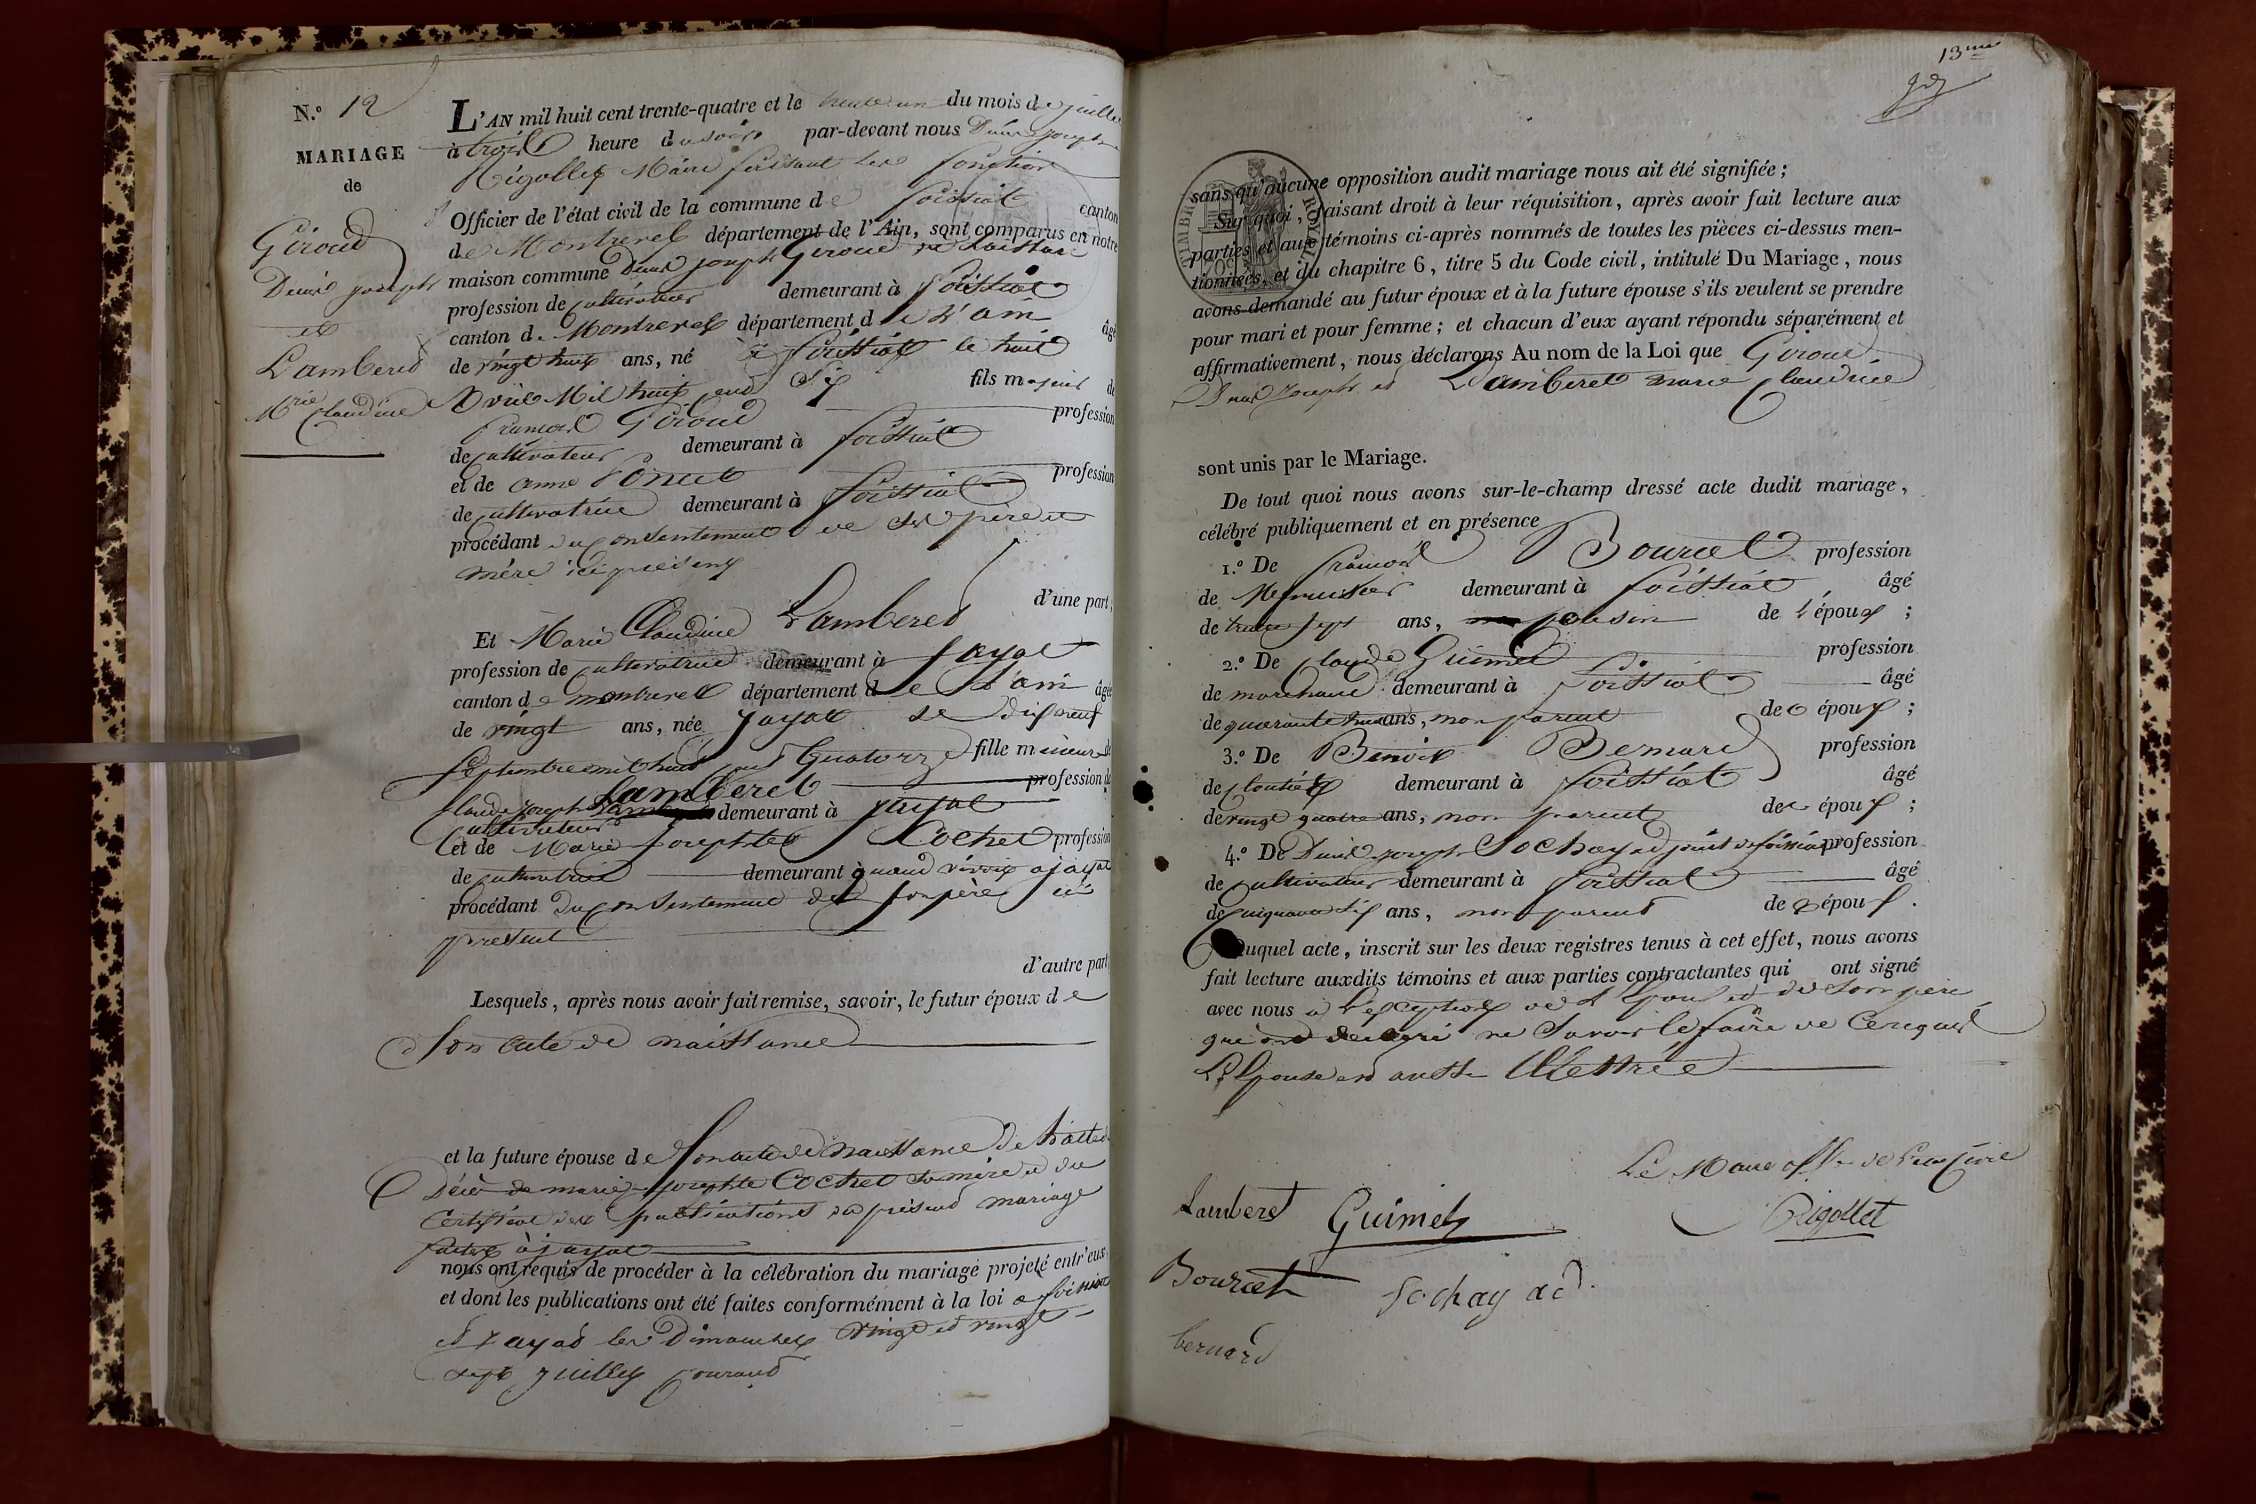 N.º 12
MARIAGE
de
Giroud
Denis joseph
et
Lamberet
Mrie Claudine
L'AN mil huit cent trente-quatre et le trente un du mois de juillet
à trois heure du soir par-devant nous Denis joseph
Rigollet Maire faisant les fonction
Officier de l'état civil de la commune de foissiat canton
de Montrevel département de l'Ain, sont comparus en notre
maison commune Denis joseph Giroud
profession de cultivateur demeurant à foissiat
canton de Montrevel département de l'ain âgé
de vingt huit ans, né à foissiat le huit
avril Mil huit cent Six fils majeur de
francois Giroud profession
de cultivateur demeurant à foissiat
et de anne profession
de cultivatrice demeurant à foissiat
procédant du consentement de ses père et
mère ici présens
d'une part;
Et Marie Claudine Lamberet
profession de cultivatrice demeurant à jayat
canton de montrevel département de l'ain âgée
de vingt ans, née jayat le dix neuf
Septembre mil huit cent Quatorze fille mineure de
Lamberet profession de
Claude joseph demeurant à jayat
cultivateur
et de Marie josephte Cochet profession
de cultivatrice demeurant quand vivoit a jayat
procédant du consentement de son père ici
present
d'autre part
Lesquels, après nous avoir fait remise, savoir, le futur époux de
Son acte de naissance
et la future épouse de Son acte de naissance de l'acte de
Décè de marie josephte Cochet sa mère et du
Certificat des publications du présent mariage
faites à jayat
nous ont requis de procéder à la célébration du mariage projeté entr'eux,
et dont les publications ont été faites conformément à la loi a foissiat
et jayat les Dimanches vingt et vingt
sept juillet courant
13me
sans qu'aucune opposition audit mariage nous ait été signifiée;
Sur quoi, faisant droit à leur réquisition, après avoir fait lecture aux
parties et aux témoins ci-après nommés de toutes les pièces ci-dessus men-
tionnées, et du chapitre 6, titre 5 du Code civil, intitulé Du Mariage, nous
avons demandé au futur époux et à la future épouse s'ils veulent se prendre
pour mari et pour femme; et chacun d'eux ayant répondu séparément et
affirmativement, nous déclarons Au nom de la Loi que Giroud
Denis Joseph et Lamberet marie Claudine
sont unis par le Mariage.
De tout quoi nous avons sur-le-champ dressé acte dudit mariage,
célébré publiquement et en présence
1.º De francois Bourcet profession
de Menuisier demeurant à foissiat âgé
de trente sept ans, cousin de l'époux;
2.º De Claude Guimet profession
de marchand demeurant à foissiat âgé
de quarante ans, non parent de époux;
3.º De Benoit Bernard profession
de cloutier demeurant à foissiat âgé
de vingt quatre ans, non parent des époux;
4.º De Denis joseph Sochay adjoint de foissiat profession
de cultivateur demeurant à foissiat âgé
de cinquante six ans, non parent de époux.
Duquel acte, inscrit sur les deux registres tenus à cet effet, nous avons
fait lecture auxdits témoins et aux parties contractantes qui ont signé
avec nous a l'exception de l'époux et de Son père
qui ont declaré ne Savoir le faire de ce requis
L'Epouse est aussi illettrée
Le Maire off. de l'etat Civil
Lamberet Guimet Rigollet
Bourcet Sochay adt.
bernard